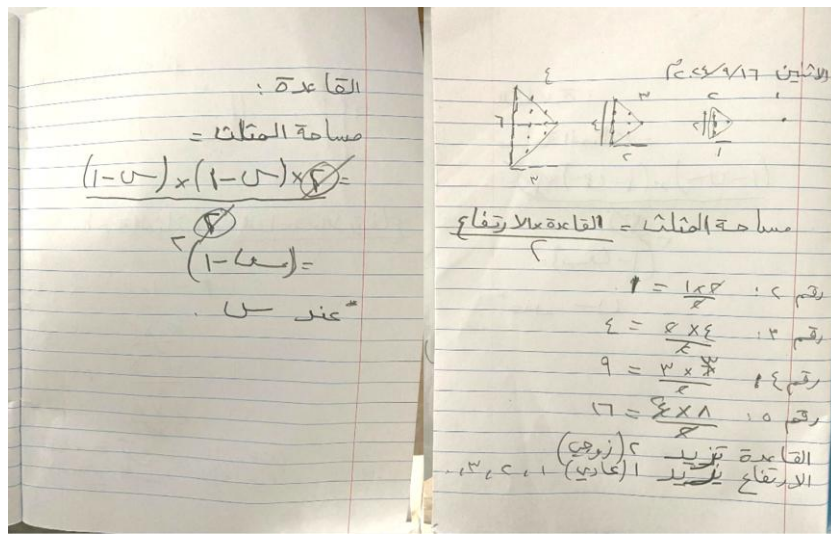 الاثنين ٢٠٢٤/٩/١٦م
٢
٣
٤
٢
٤
٦
١
٢
٣
مساحة المثلث = القاعدة×الارتفاع / ٢
رقم ٢: ٢×١ / ٢ = ١
رقم ٣: ٤×٢ / ٢ = ٤
رقم ٤: ٦×٣ / ٢ = ٩
رقم ٥: ٨×٤ / ٢ = ١٦
القاعدة تزيد ٢ (زوجي)
الارتفاع يزيد ١ (عادي) ١, ٢, ٣, ..
القاعدة:
مساحة المثلث =
= ٢×(س-١)×(س-١)
٢
= (س-١)٢
*عند س.